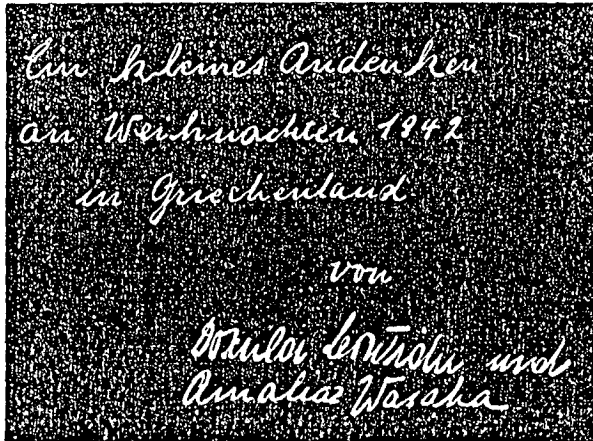 Ein kleines Andenken
an Weihnachten 1942
in Griechenland
von
und
Amalias Wasaka